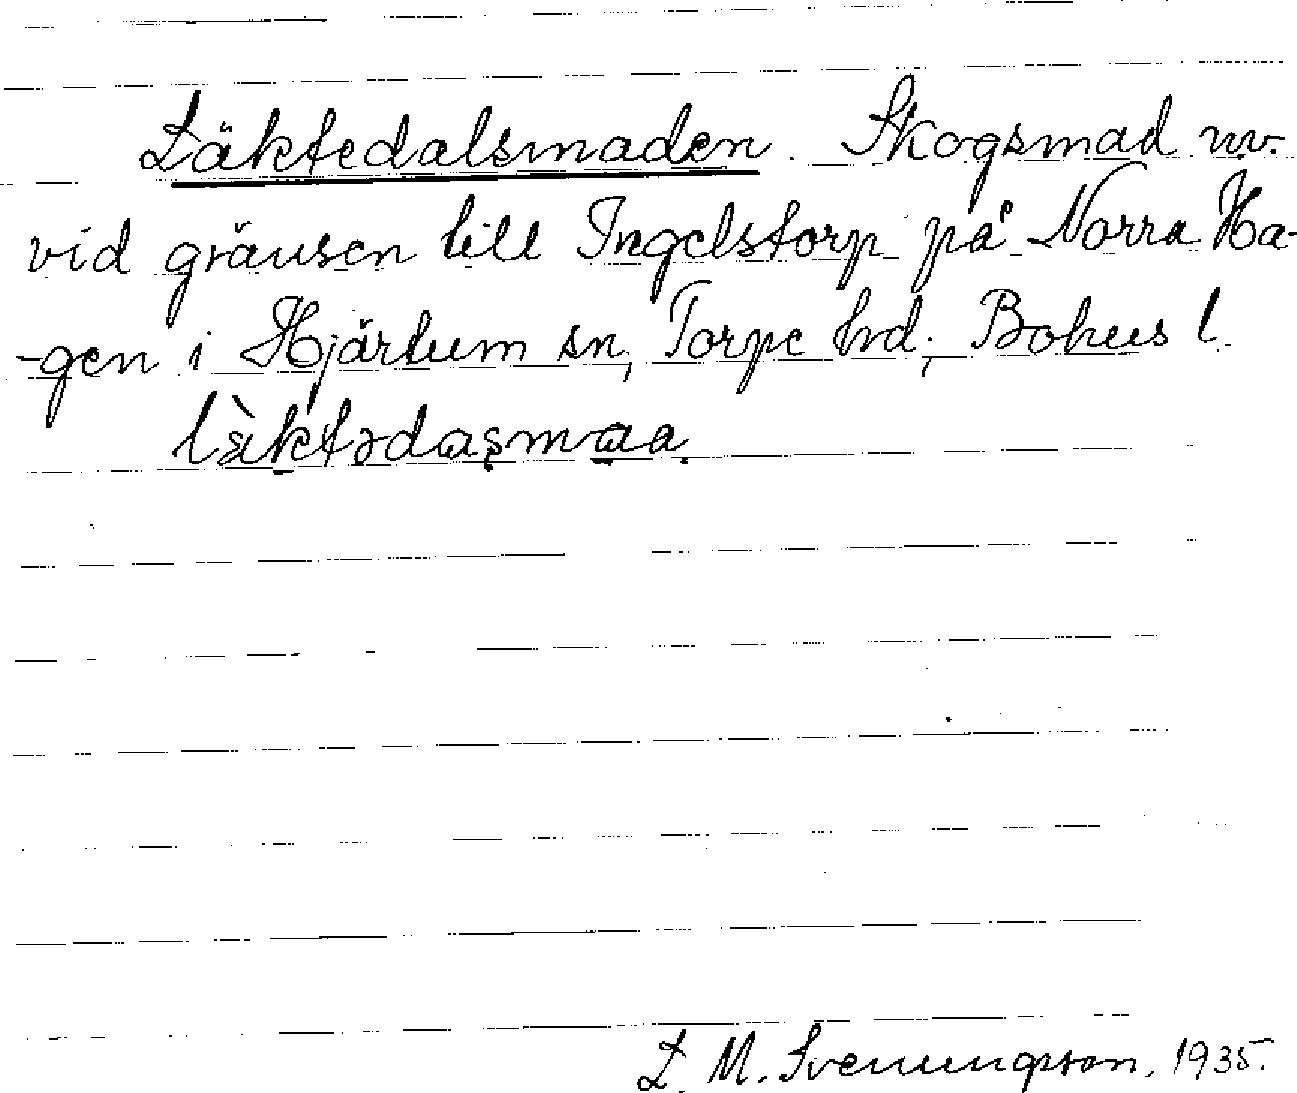 Läktedalsmaden. Skogsmad nv.
vid gränsen till Ingelstorp på Norra Ha-
-gen i Hjärtum sn, Torpe hd, Bohus l.
lὰktədaşmaa
L. M. Svenungsson. 1935.